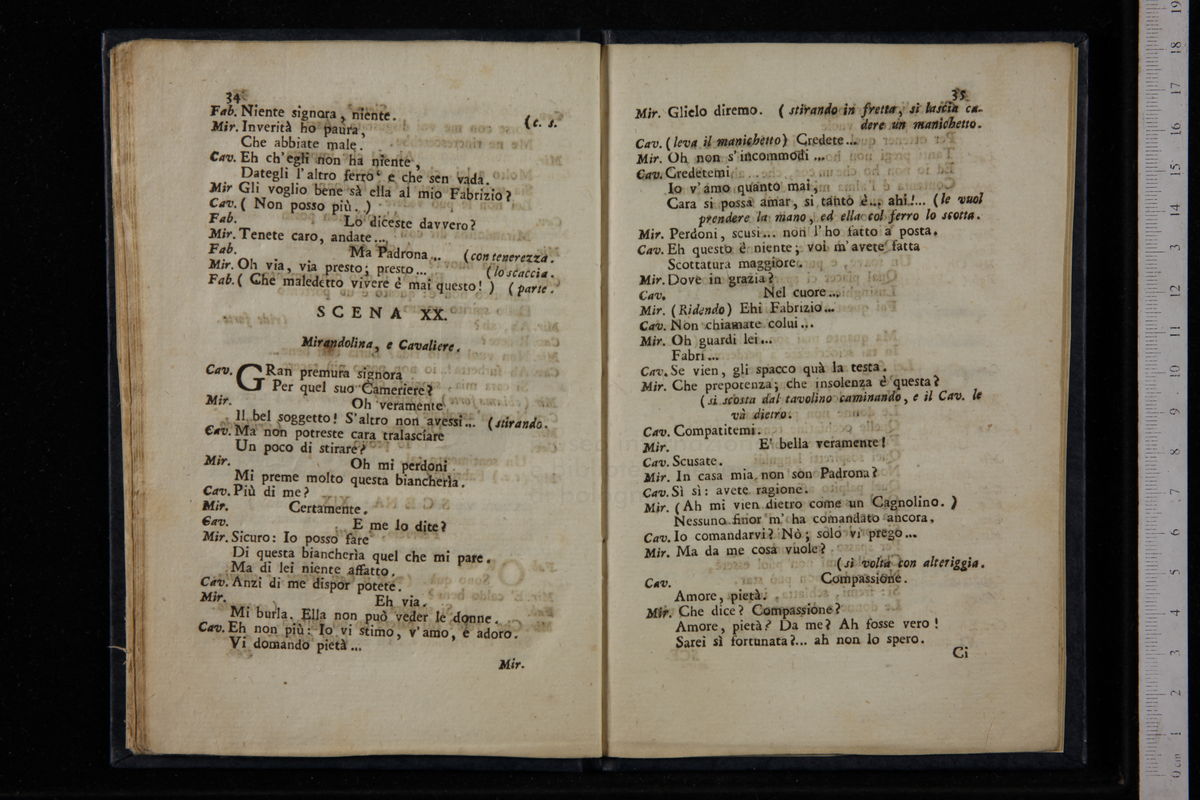 34
Fab. Niente signora, niente.
Mir. Inverità ho paura, (c. s.
Che abbiate male.
Cav. Eh ch'egli non ha niente,
Dategli l'altro ferro e che sen vada.
Mir Gli voglio bene sà ella al mio Fabrizio?
Cav. ( Non posso più. )
Fab. Lo diceste davvero?
Mir. Tenete caro, andate...
Fab. Ma Padrona... (con tenerezza.
Mir. Oh via, via presto; presto... (lo scaccia.
Fab. ( Che maledetto vivere è mai questo! ) (parte.
SCENA XX.
Mirandolina, e Cavaliere.
Cav. GRan premura signora
Per quel suo Cameriere?
Mir. Oh veramente
Il bel soggetto! S'altro non avessi... (stirando.
Cav. Ma non potreste cara tralasciare
Un poco di stirare?
Mir. Oh mi perdoni
Mi preme molto questa biancherìa.
Cav. Più di me?
Mir. Certamente.
Cav. E me lo dite?
Mir. Sicuro: Io posso fare
Di questa biancherìa quel che mi pare.
Ma di lei niente affatto.
Cav. Anzi di me dispor potete.
Mir. Eh via.
Mi burla. Ella non può veder le donne.
Cav. Eh non più: Io vi stimo, v'amo, e adoro.
Vi domando pietà...
Mir.
35
Mir. Glielo diremo. ( stirando in fretta, si lascia ca-
dere un manichetto.
Cav. (leva il manichetto) Credete...
Mir. Oh non s'incommodi...
Cav. Credetemi
Io v'amo quanto mai,
Cara si possa amar, si tanto è... ahi!... (le vuol
prendere la mano, ed ella col ferro lo scotta.
Mir. Perdoni, scusi... non l'ho fatto a posta.
Cav. Eh questo è niente; voi m'avete fatta
Scottatura maggiore.
Mir. Dove in grazia?
Cav. Nel cuore...
Mir. (Ridendo) Ehi Fabrizio...
Cav. Non chiamate colui...
Mir. Oh guardi lei...
Fabri...
Cav. Se vien, gli spacco quà la testa.
Mir. Che prepotenza; che insolenza è questa?
(si scosta dal tavolino caminando, e il Cav. le
và dietro.
Cav. Compatitemi.
Mir. E' bella veramente!
Cav. Scusate.
Mir. In casa mia non son Padrona?
Cav. Sì sì: avete ragione.
Mir. (Ah mi vien dietro come un Cagnolino. )
Nessuno finor m'ha comandato ancora.
Cav. Io comandarvi? Nò; solo vi prego...
Mir. Ma da me cosa vuole?
(si volta con alteriggia.
Cav. Compassione.
Amore, pietà.
Mir. Che dice? Compassione?
Amore, pietà? Da me? Ah fosse vero!
Sarei sì fortunata?... ah non lo spero.
Ci
0 cm 1 2 3 4 5 6 7 8 9 10 11 12 13 14 15 16 17 18 19